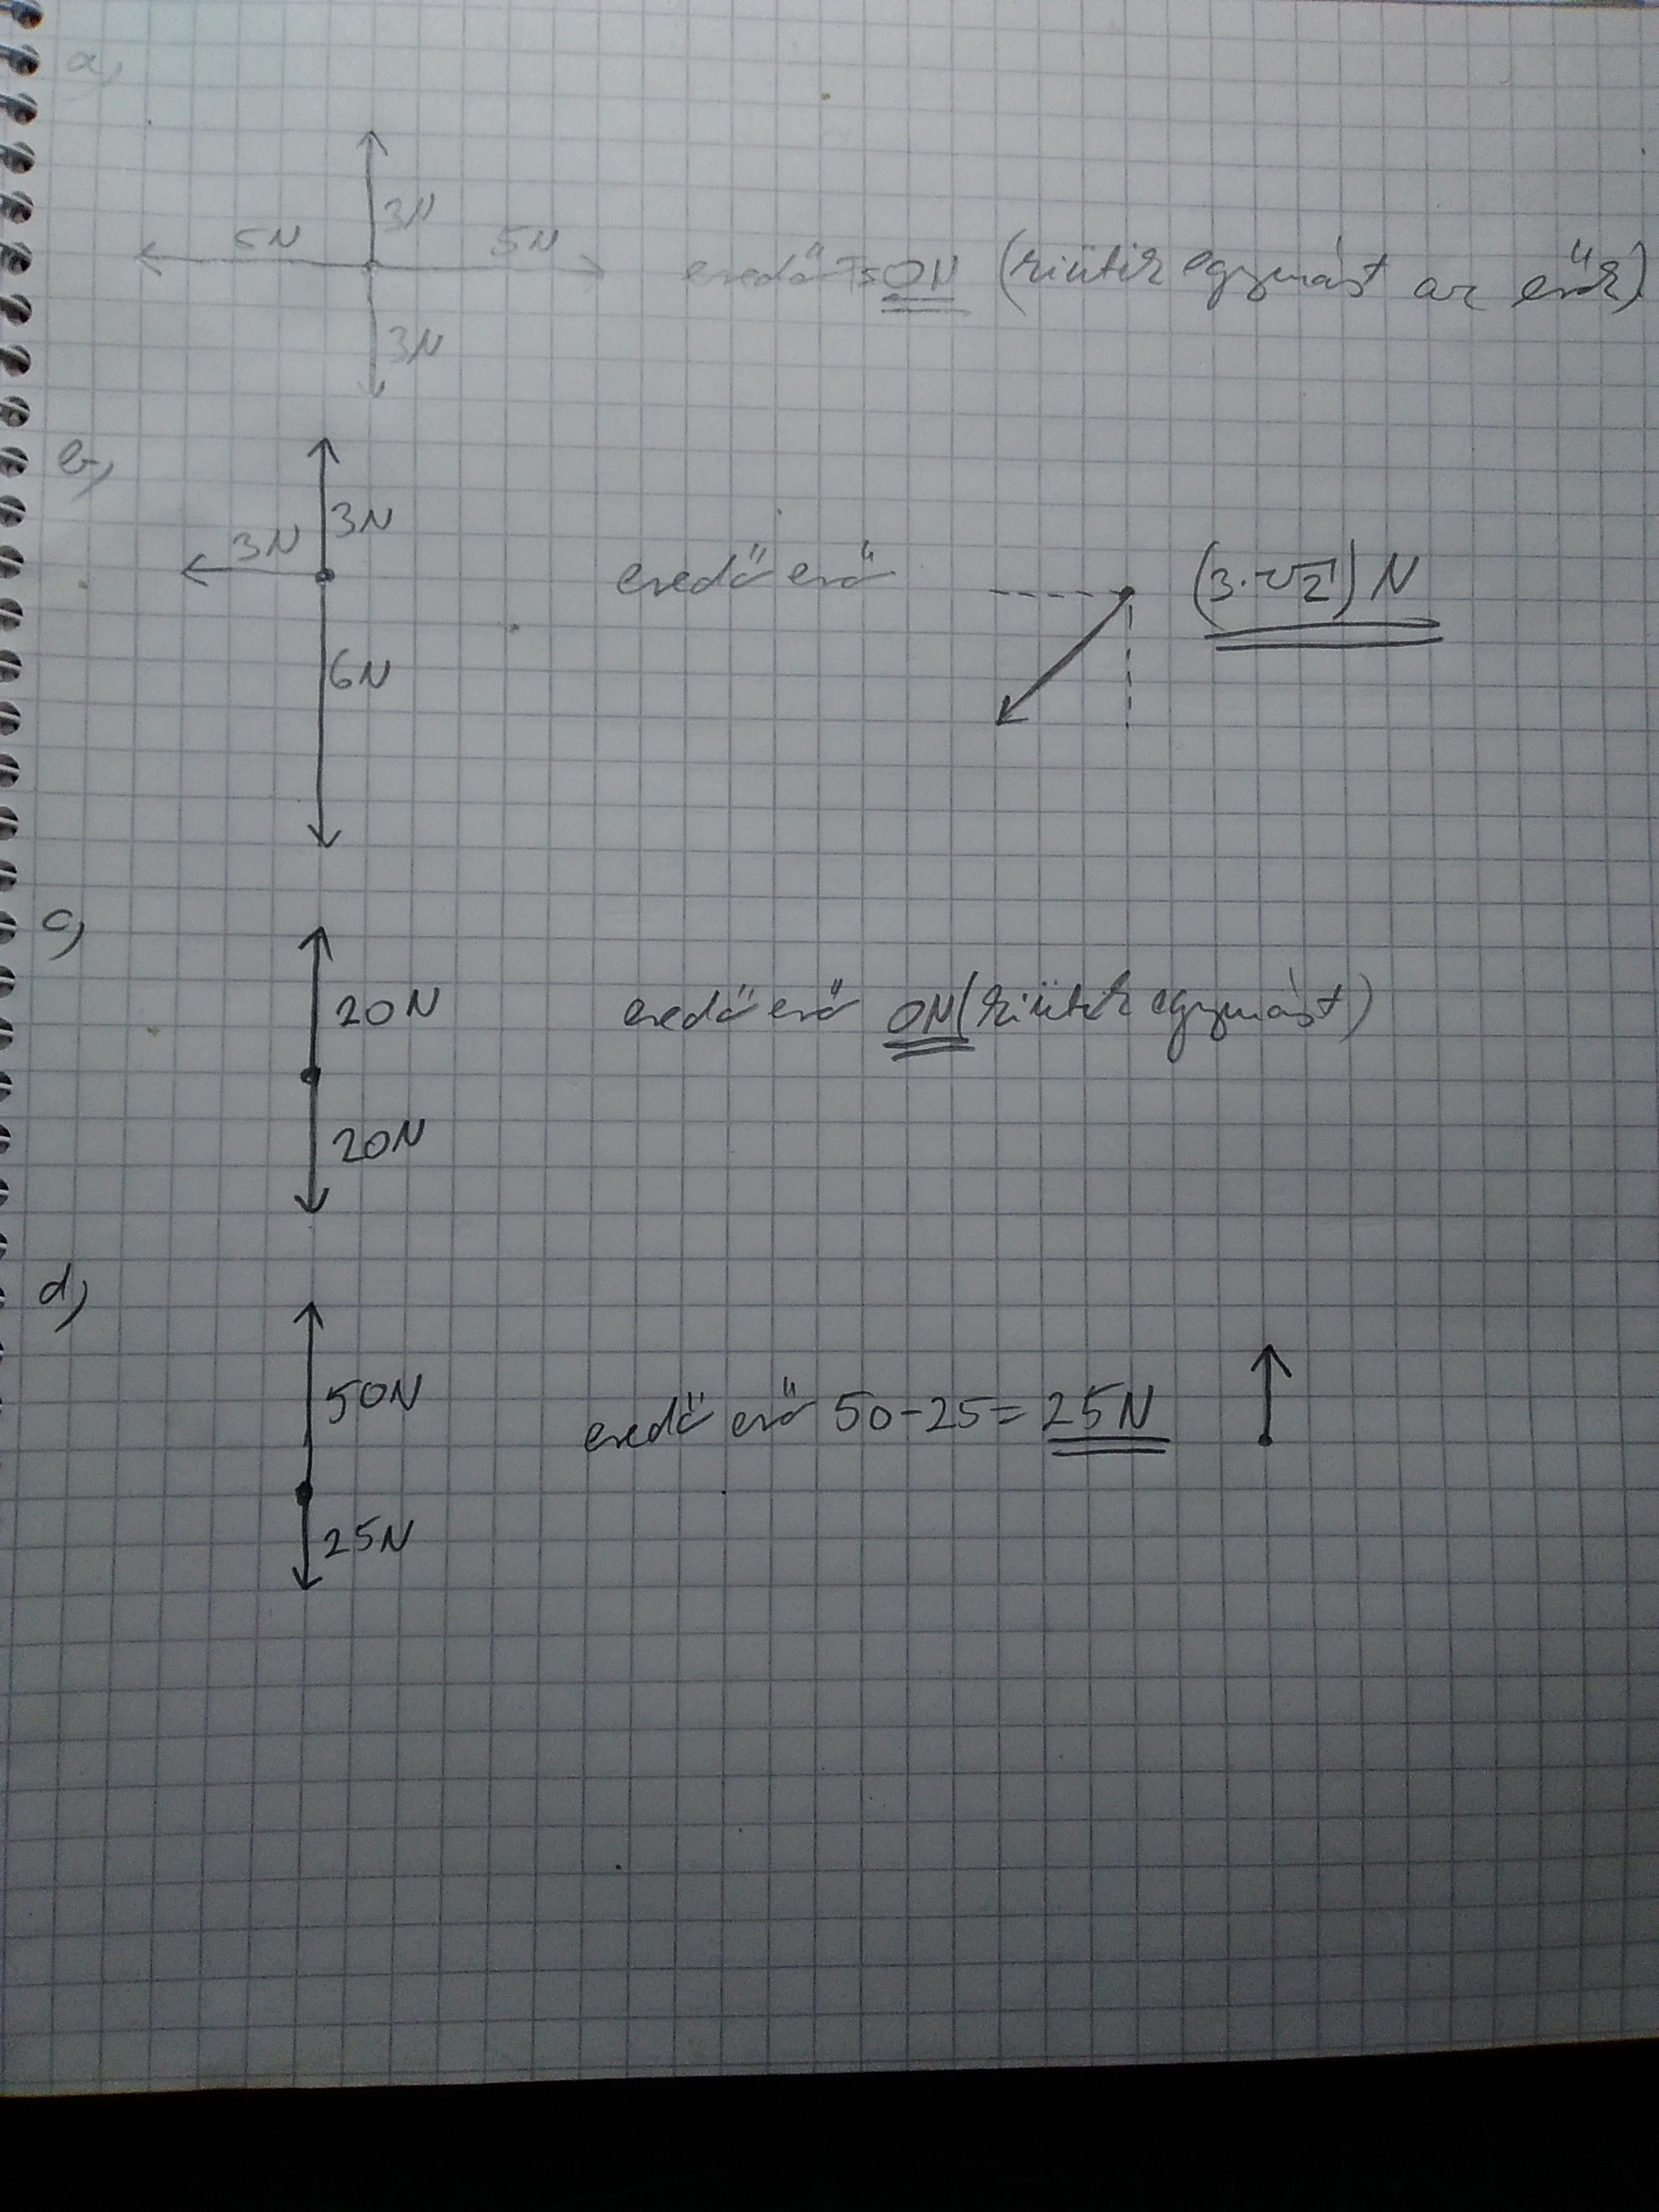 a,
3N
5N 5N
eredő = 0N (kiütik egymást az erők)
3N
b,
3N
3N
eredő erő (3·√2) N
6N
c,
20N
eredő erő 0N (kiütik egymást)
20N
d,
50N
eredő erő 50-25= 25N
25N